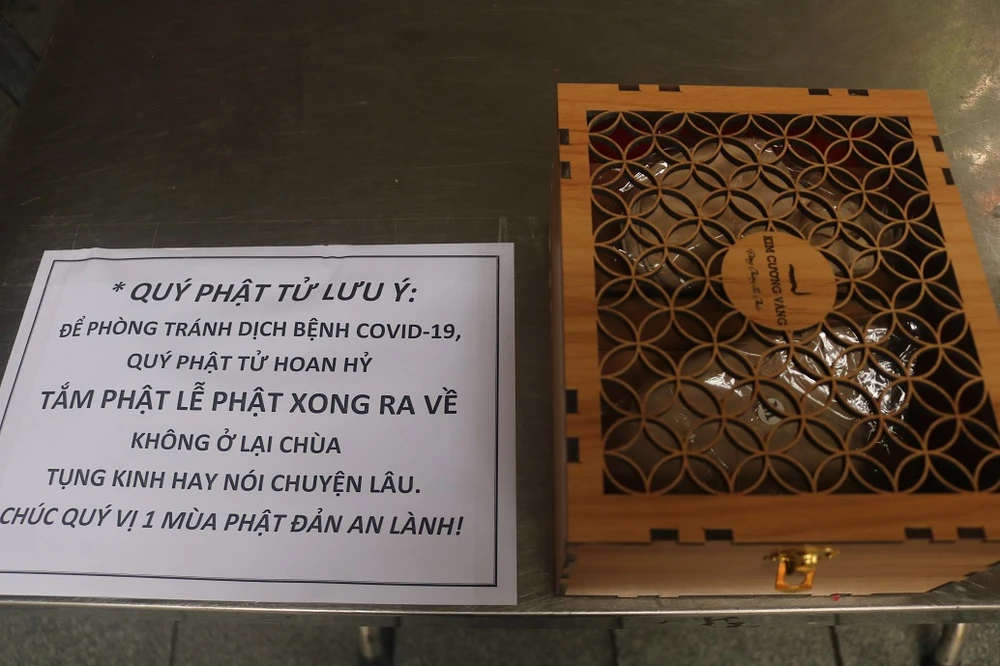 * QUÝ PHẬT TỬ LƯU Ý:
ĐỂ PHÒNG TRÁNH DỊCH BỆNH COVID-19,
QUÝ PHẬT TỬ HOAN HỶ
TẮM PHẬT LỄ PHẬT XONG RA VỀ
KHÔNG Ở LẠI CHÙA
TỤNG KINH HAY NÓI CHUYỆN LÂU.
CHÚC QUÝ VỊ 1 MÙA PHẬT ĐẢN AN LÀNH!
KIM CƯƠNG VÀNG